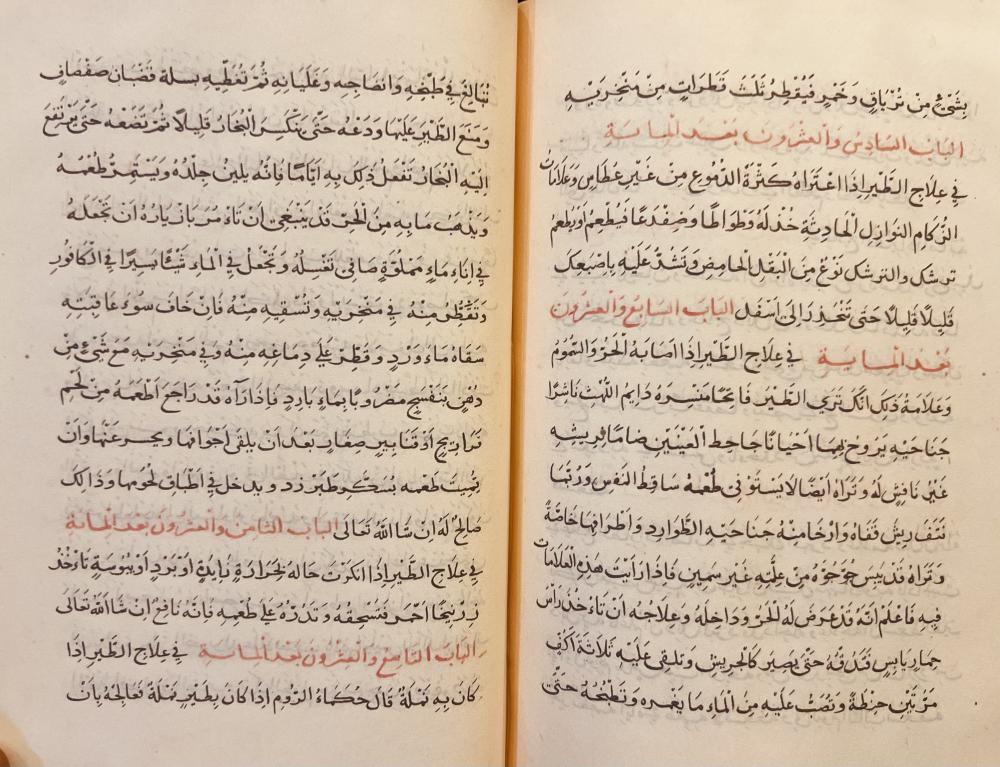 بِشَيْءٍ مِنْ تُرْيَاقٍ وَخَمْرٍ فَيُقْطِرُ ثَلَثَ قَطَرَاتٍ مِنْ مَنْخِرَيْهِ
الباب السَادِسُ وَالْعِشْرُونَ بَعْدَ الْمِايَةِ
فِي عِلَاجِ الطَّيْرِ اِذَا اعْتَرَاهُ كَثْرَةُ الدُّمُوعِ مِنْ غَيْرِ عُطَاسٍ وَعَلَامَاتُ
الزُّكَامِ النَوَازِلِ الْحَادِثَةِ خُذْ لَهُ وَطْوَاطًا وَضِفْدَعًا فَيُطْعَمُ اَوْ يُطْعَمُ
ترشك والترشك نَوْعٌ مِنَ الْبَقْلِ الْحَامِضِ وَتَشُدُّ عَلَيْهِ بِاِصْبَعِكَ
قَلِيلًا قَلِيلًا حَتَى تَنْحَدِرَ اِلَى اَسْفَل البَابُ السَابِعُ وَالْعِشْرُونَ
بَعْدَ الْمِايَةِ فِي عِلَاجِ الطَّيْرِ اِذَا اَصَابَهُ الْحَرُّ وَالسَّمُومُ
وَعَلَامَةُ ذَلِكَ اَنَّكَ تَرَي الطَّيْرَ فَاتِحًا مَنْسِرَهُ دَايِمُ اللَّهْثِ نَاشِرًا
جَنَاحَيْهِ يَرَوِّحُ بِهِمَا اَحْيَانًا جَاحِظَ الْعَيْنَيْنِ ضَامًّا لِرِيشِهِ
غَيْرُ نَافِشٍ لَهُ وَتَرَاهُ اَيْضًا لَا يَسْتَوْفِي طُعْمَهُ سَاقِطُ النَفَسِ وَرُبَّمَا
نَتَفَ رِيشَ قَفَاهُ وَاَرْخَا مِنْهُ جَنَاحَيْهِ الطَّوَارِدِ وَاَطْرَافِهَا خَاصَّةً
وَتَرَاهُ قَدْ يَبِسَ جُوجُؤهُ مِنْ عِلَّتِهِ غَيْرَ سَمِينٍ فَاِذَا رَاَيْتَ هَذِهِ الْعَلَامَاتِ
فِيهِ فَاعْلَمْ اَنَّهُ قَدْ عَرَضَ لَهُ الْحَرُّ وَدَاخِلَهُ وَعِلَاجُهُ اَنْ تَاْءخُذَ رَأسَ
حِمَارٍ يَابِسٍ فَدُقَّهُ حَتَّى يَصِيرَ كَالْجَرِيشِ وَتُلْقِي عَلَيْهِ ثَلَاثَةَ اَكُفٍّ
مَرَّتَيْنِ حِنْطَةً وَتَصُبُّ عَلَيْهِ مِنَ الْمَاءِ مَا يَغْمُرهُ وَتَطْبُخُهُ حَتَّى
تُبَالِغَ فِي طَبْخِهِ وَانْضَاجِهِ وَغَلَيَانِهِ ثُمَّ تُغَطِّيهِ بسلة قضْبَان صَفْصَافٍ
وَمَنَعَ الطَّيْرَ عَلَيْهَا وَدَعْهُ حَتَّى يَنْكَسِرَ الْبُخَارُ قَلِيلًا ثُمَّ تَضَعْهُ حَتَّى يَرْتَفِعَ
اِلَيْهِ الْبُخَارُ تَفْعَلُ ذَلِكَ بِهِ اَيَّامًا فَاِنَّهُ يَلِينُ جِلْدُهُ وَيَسْتَمِرُّ طُعْمَهُ
وَيَذْهَبُ مَا بِهِ مِنَ الْحَرِّ قَدْ يَنْبَغِي اَنْ تَاْءمُرَ بَازْيَارَهُ اَنْ تَجْعَلَهُ
فِي اِنَاءِ مَاءٍ مَمْلُوَّةٍ صَافِى تَغْسِلُهُ وَتَجْعَلُ فِي الْمَاءِ شَيْئًا يَسِيرًا فِي الْكَافُورِ
وَتُقَطِّرُ مِنْهُ فِي مَنْخِرَيْهِ وَتُسْقِيهِ مِنْهُ فَاِنْ خَافَ سُوءَ عَاقِبَتِهِ
سَقَاهُ مَاءَ وَرْدٍ وَقُطِّرَ عَلَى دِمَاغِهِ مِنْهُ وَفِي مَنْخِرَيْهِ مَعَ شَيْءٍ مِنْ
دُهْنِ بَنَفْسَجٍ مَضْرُوبًا بِمَاءٍ بَارِدٍ فَاِذَا رَآهُ قَدْ رَاجَعَ اَطْعَمَهُ مِنْ لَحْمِ
فَرَارِيجٍ اَوْ قَنَابِيرٍ صِغَارٍ بَعْدَ اَنْ يلقى اَجْوَافَهَا ويحسر عَنْهَا وَاَنْ
طَعْمه بُسَكَّرٍ طَبَرْزَد و يدخل فِي اَطْبَاقِ لُحُومِهَا وَذَالِكَ
صَالِحٌ لَهُ اِنْ شَا اللهُ تَعَالَى البَابُ الثَامِنُ وَالْعِشْرُونَ بَعْدَ الْمِائَةِ
فِي عِلَاجِ الطَّيْرِ اِذَا انكَرْتَ حَالَهُ لِحَرَارَةٍ زَايِدَةٍ اَوْ بَرْدٍ اَوْ يُبُوسَةٍ تَاْءخُذُ
زَرْنِيخًا اَحْمَرَ فَتَسْحِقُهُ وَتَذُرُّهُ عَلَى طُعْمِهِ فَاِنَّهُ نَافِعٌ اِنْ شَا اللهُ تَعَالَى
البَابُ التَاسِعُ وَالْعِشْرُونَ بَعْدَ الْمِايَةِ فِي عِلَاجِ الطَّيْرِ اِذَا
كَانَ بِهِ نَمْلَةٌ قَالَ حُكَمَاءُ الرُّومِ اِذَا كَانَ بِطَيْرٍ نَمْلَةٌ فَعَالِجْهُ بِاَنْ